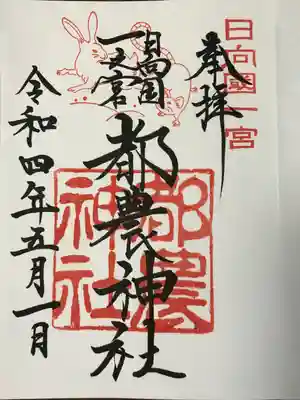 日向國一宮
奉拝
日向國
一之宮
都農神社
都農神社
令和四年五月一日